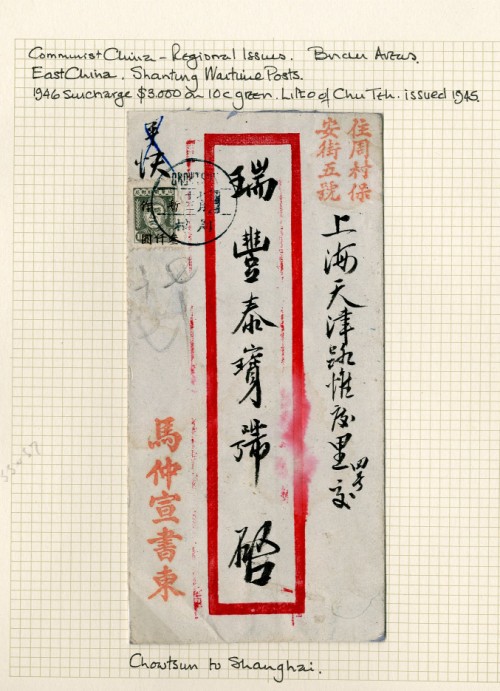 Communist China - Regional Issues. Border Areas.
East China. Shantung Wartime Posts.
1946 surcharge $3.000 on 10c green. Litho of Chu Teh. issued 1945.
住周村保
安街五號
上海天津路里四号交
瑞豐泰寶號 啟
快
馬仲宣書柬
Chowtsun to Shanghai.